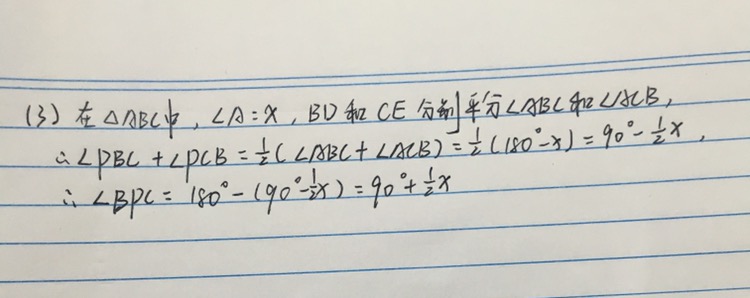 (3) 在△ABC中，∠A=x，BD和CE分别平分∠ABC和∠ACB，
∴∠PBC+∠PCB=½(∠ABC+∠ACB)=½(180°-x)=90°-½x，
∴∠BPC=180°-(90°-½x)=90°+½x